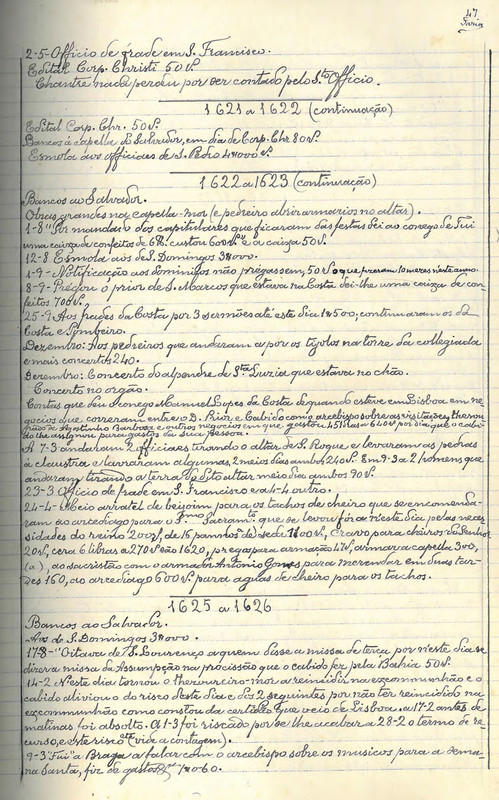 47
2-5-Officio de frade em S. Francisco.
Edital Corp. Christi 50 rs.
Chantre nada perdeu por ser contado pelo Sto Officio.
1621 a 1622 (continuação)
Edital Corp. Chr. 50 rs.
Bancos á capella do Salvador, em dia de Corp. Chr 80 rs.
Esmola aos officiaes de S. Pedro 4$000 rs.
1622 a 1623 (continuação)
Bancos ao Salvador.
Obras grandes na capella-mor (e pedreiro abrir armarios no altar).
1-8 "Por mandado dos capitulares que ficaram das festas dei ao conego de Tui
uma caixa de confeitos de 6 custou 600 rs" e a caixa 50 rs.
12-8 Esmola aos de S. Domingos 3$000.
1-9-Notificação aos dominigos não prégassem, 50 rs o que fizeram 10 mezes neste anno.
8-9-Prégou o prior de S. Marcos que estava na Costa dei-lhe uma caixa de con-
feitos 700 rs.
25-9 Aos frades da Costa por 3 sermões até este dia 1$500; continuaram os da
Costa e Pombeiro.
Dezembro: Aos pedreiros que andaram a por os tijolos na torre da collegiada
e mais concertos 240.
Dezembro: Concerto do alpendre de Sta Luzia que estava no chão.
Concerto no orgão.
Contas que deu o conego Manuel Lopes da Costa de quando esteve em Lisboa em ne-
gocios que correram entre o D. Prior e Cabido com o arcebispo sobre as visitações, thesou-
Agostinho Barbosa e outros negocios em que gastou a 640 por dia que o cabi-
do lhe assignou para gastos da sua pessoa.
A 7-3 andaram 2 officiaes tirando o altar de S. Roque e levaram as pedras
á claustra e lavraram algumas, 2 meios dias ambos 240 rs. Em 9-3 a 2 homens que
andaram tirando a terra do dito altar meio dia ambos 90 rs.
23-3 Officio de frade em S. Francisco e a 4-4 outro.
24-4-Meio arratel de beijoim para os tachos de cheiro que se encomenda-
ram ao arcediago para o SSmo Sacramto que se levou fóra neste dia pelas neces-
sidades do reino 200 rs, de 16 pannos de seda 1$100 rs, Cravo para cheiros do Senhor
20 rs, cera 6 libras a 270 rs são 1620, pregos para armação 47 rs, armar a capella 300,
(a), ao sacristão com o armador Antonio Gomes para merendar em duas tar-
des 160, ao arcediago 600 rs para aguas de cheiro para os tachos.
1625 a 1626
Bancos ao Salvador.
Aos de S. Domingos 3$000.
17-8-"Oitava de S. Lourenço a quem disse a missa de terça por neste dia se
dizer a missa da Assumpção na procissão que o cabido fez pela Bahia 50 rs.
14-2 Neste dia tornou o thesoureiro-mor a reincidir na excommunhão e o
cabido aliviou o do risco deste dia e dos 2 seguintes por não ter reincidido na
excommunhão como constou da certidão que veio de Lisboa. a 17-2 antes de
matinas foi absolto. A 1-3 foi riscado por se lhe acabar a 28-2 o termo de re-
curso, e este risco (vid. a contagem).
9-3 "Fui" a Braga a falar com o arcebispo sobre os musicos para a sema-
na Santa, fiz de gastos 1$060.